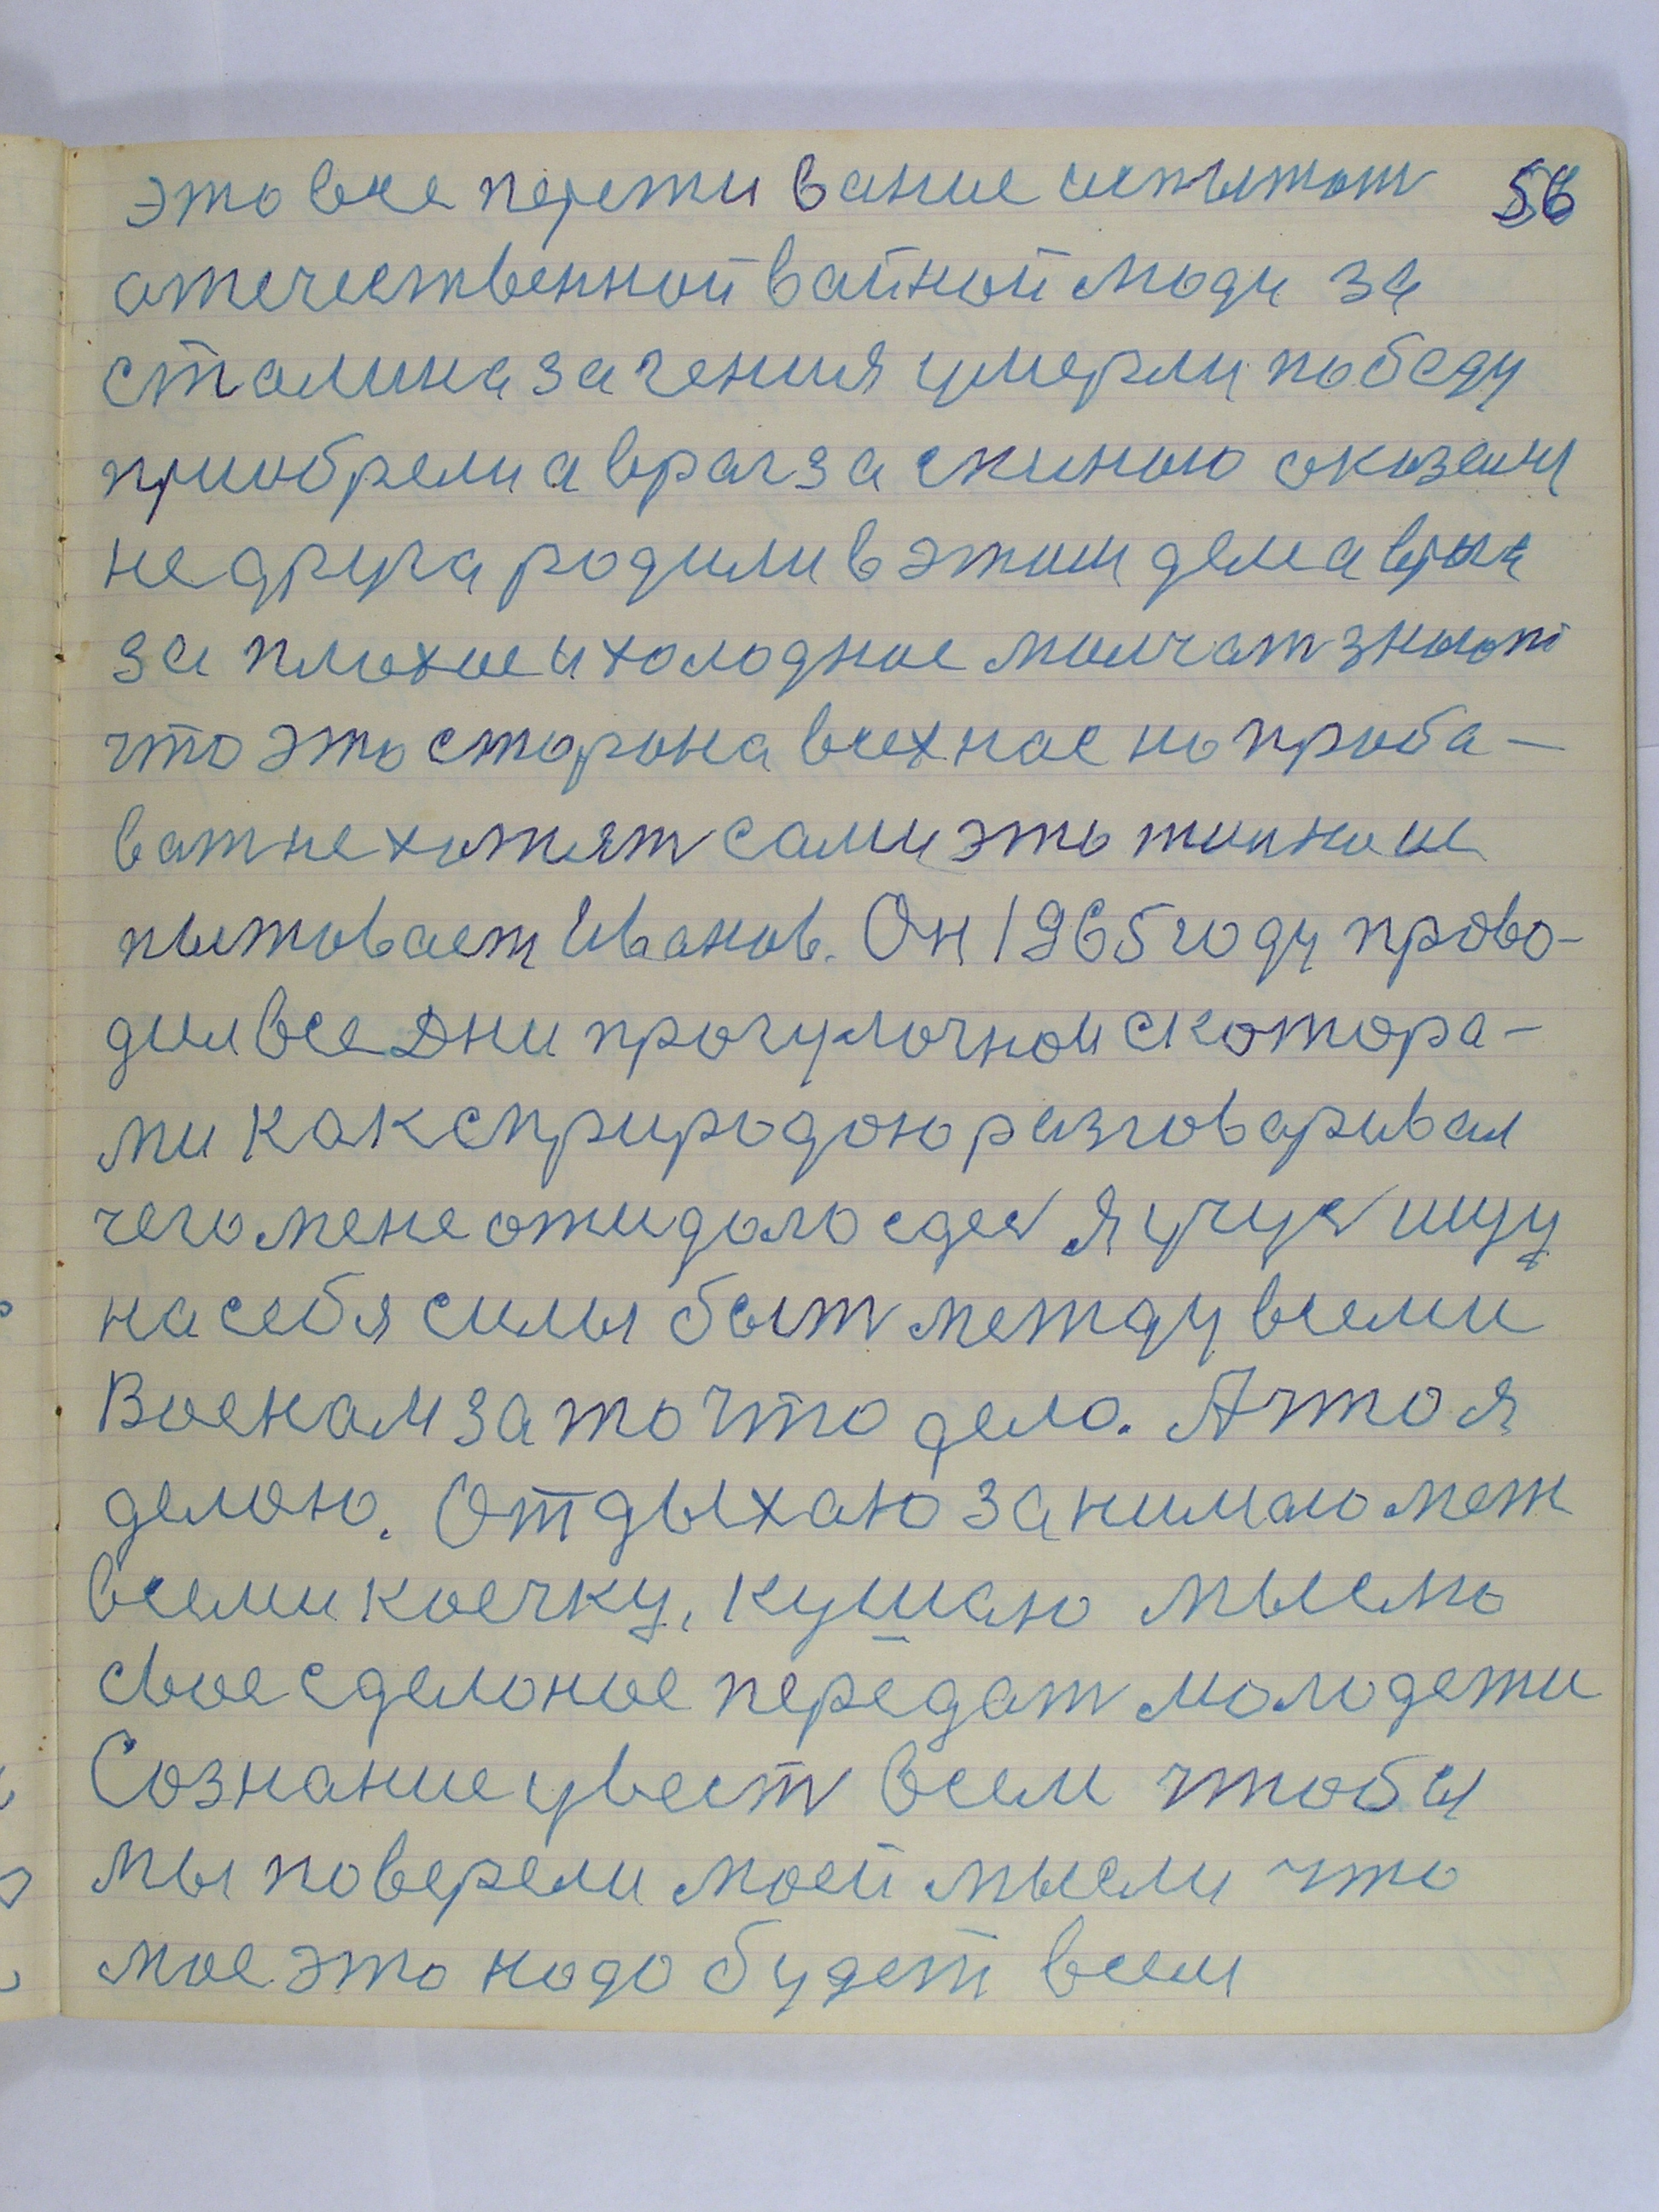 это все пережи вание испытат 56
отечественной вайной люди за
сталина за гения умерли победу
приобрели а враг за спиною оказали
не друга родили в этим деле а врага
за плохое и холодное молчат знают
что это сторона всех нас но проба-
ват не хотят сами это точно ис
пытовает Иванов. Он 1965 году прово-
дил все Дни прогулочной с котора-
ми как с природою разговаривал
чего мене ожидало сдес я учус ищу
на себя силы быт между всеми
Воснам за то что дело. А что я
делаю. Отдыхаю занимаю меж
всеми коечку, кушаю мыслю
свое сделоное передат молодежи
Сознание увест всем чтобы
мы поверели моей мысли что
мое это надо будет всем